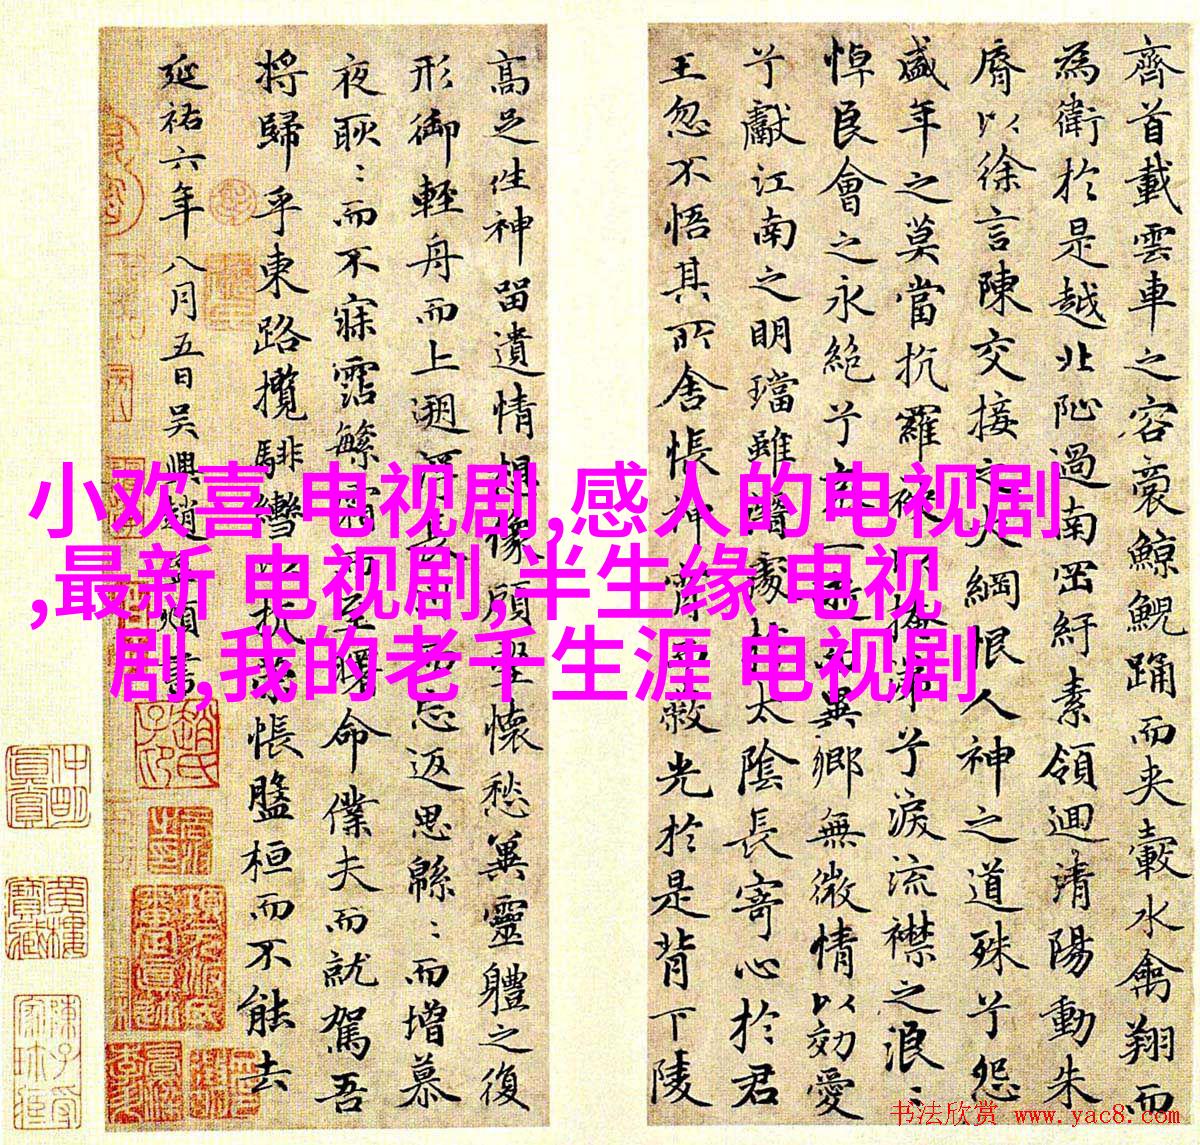 齊首載雲車之容裔鯨鯢踊而夾轂水禽翔而
為衛於是越北沚過南岡紆素領迴清陽動朱
脣以徐言陳交接之大綱恨人神之道殊兮怨
盛年之莫當抗羅
兮淚流襟之浪〻
悼良會之永絕兮
異鄉無微情以効愛
兮獻江南之明璫雖潛處
太陰長寄心於君
王忽不悟其所舍悵神宵
光於是背下陵
高足往神留遺情想像顧
懷愁冀靈體之復
形御輕舟而上遡
忘返思緜〻而增慕
夜耿〻而不寐霑繁霜而至曙命僕夫而就駕吾
將歸乎東路攬騑轡以抗策悵盤桓而不能去
延祐六年八月五日吳興趙孟頫書
小欢喜 电视剧,感人的电视剧
,最新 电视剧,半生缘 电视
剧,我的老千生涯 电视剧
书法欣赏 www.yac8.com